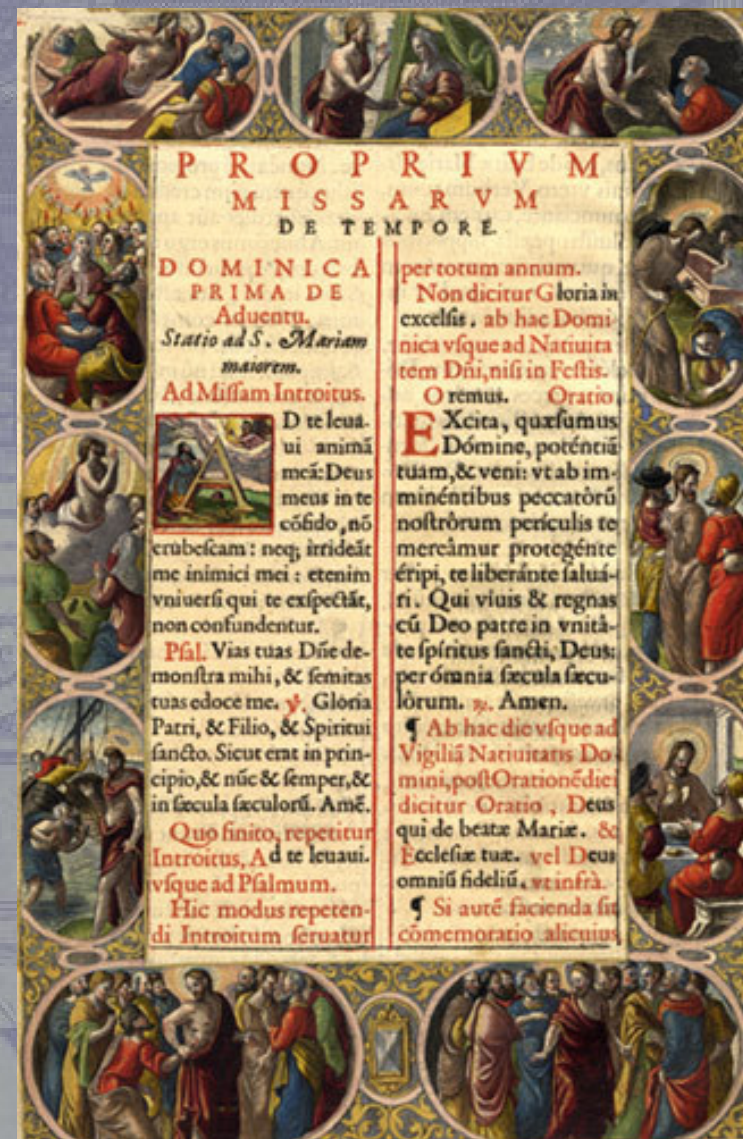 PROPRIVM
MISSARVM
DE TEMPORE.
DOMINICA
PRIMA DE
Aduentu.
Statio ad S. Mariam
maiorem.
Ad Miſſam Introitus.
AD te leua-
ui animā
meā: Deus
meus in te
cōfido, nō
erubeſcam: neq; irrideāt
me inimici mei: etenim
vniuerſi qui te exſpectāt,
non confundentur.
Pſal. Vias tuas Dñe de-
monſtra mihi, & ſemitas
tuas edoce me. ℣. Gloria
Patri, & Filio, & Spiritui
ſancto. Sicut erat in prin-
cipio, & nūc & ſemper, &
in ſæcula ſæculorū. Amē.
Quo finito, repetitur
Introitus, Ad te leuaui.
vſque ad Pſalmum.
Hic modus repeten-
di Introitum ſeruatur
per totum annum.
Non dicitur Gloria in
excelſis. ab hac Domi
nica vſque ad Natiuita
tem Dñi, niſi in Feſtis.
Oremus. Oratio
EXcita, quæſumus
Dómine, poténtiā
tuam, & veni: vt ab im-
minéntibus peccatórū
noſtrôrum perículis te
mereâmur protegénte
éripi, te liberánte ſaluá-
ri. Qui viuis & regnas
cū Deo patre in vnitâ-
te ſpíritus ſancti, Deus:
per ómnia ſæcula ſæcu-
lôrum. ℟. Amen.
¶ Ab hac die vſque ad
Vigiliā Natiuitatis Do
mini, poſt Orationē diei
dicitur Oratio, Deus
qui de beatæ Mariæ. &
Eccleſiæ tuæ. vel Deus
omniū fideliū. vt infrà.
¶ Si autē facienda ſit
cōmemoratio alicuius